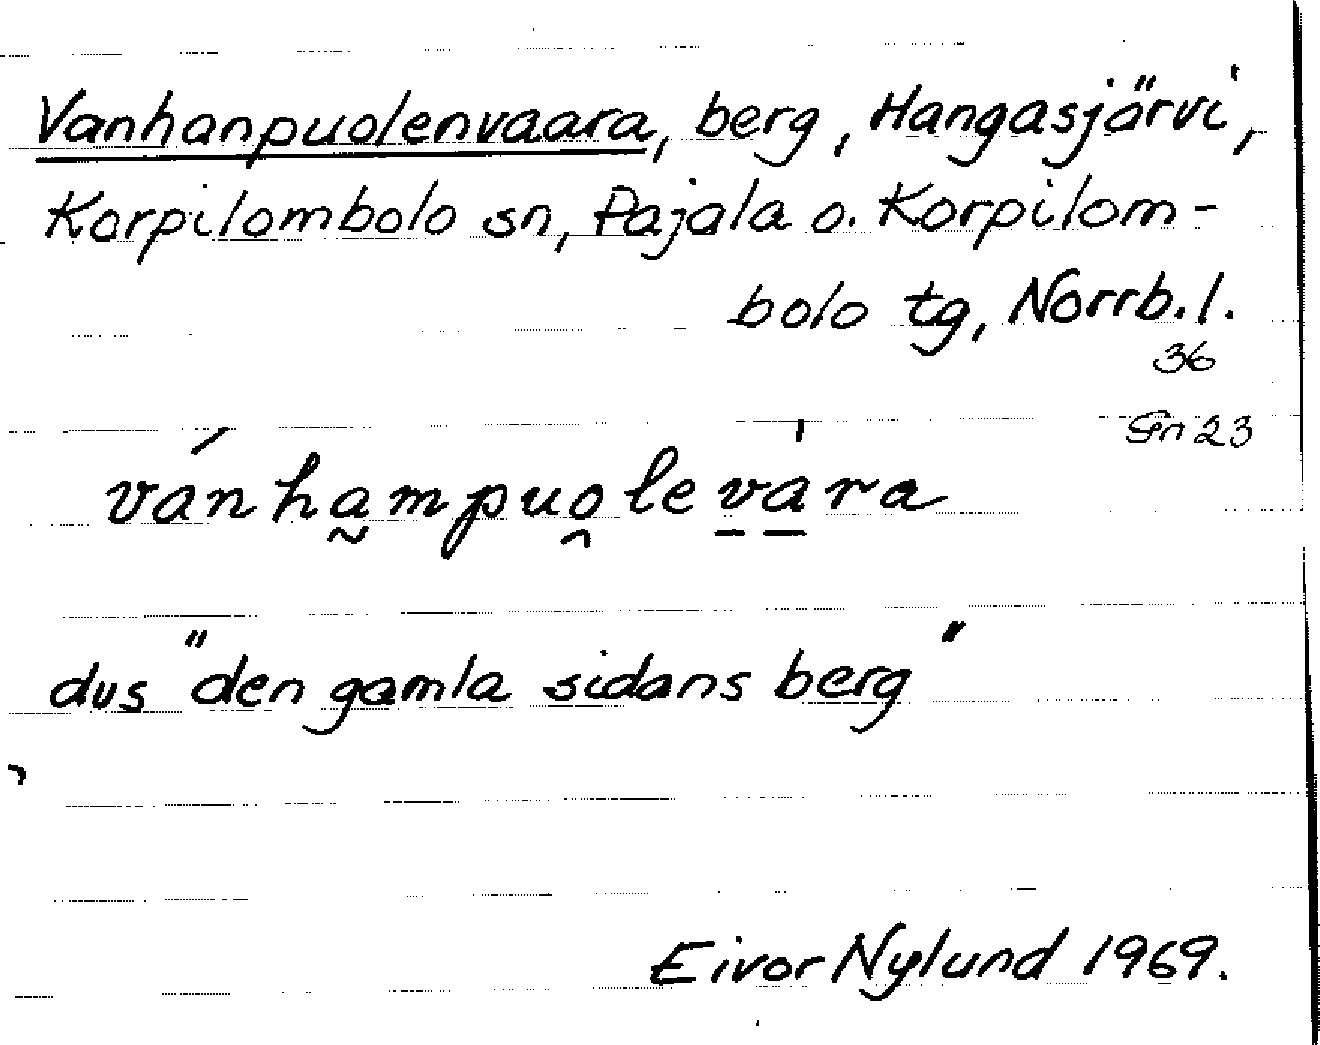 Vanhanpuolenvaara, berg, Hangasjärvi,
Korpilombolo sn, Pajala o. Korpilom-
bolo tg, Norrb. l.
36
Gn 23
vánha̰mpuo̯lev̱á̱ra
dvs "den gamla sidans berg"
Eivor Nylund 1969.